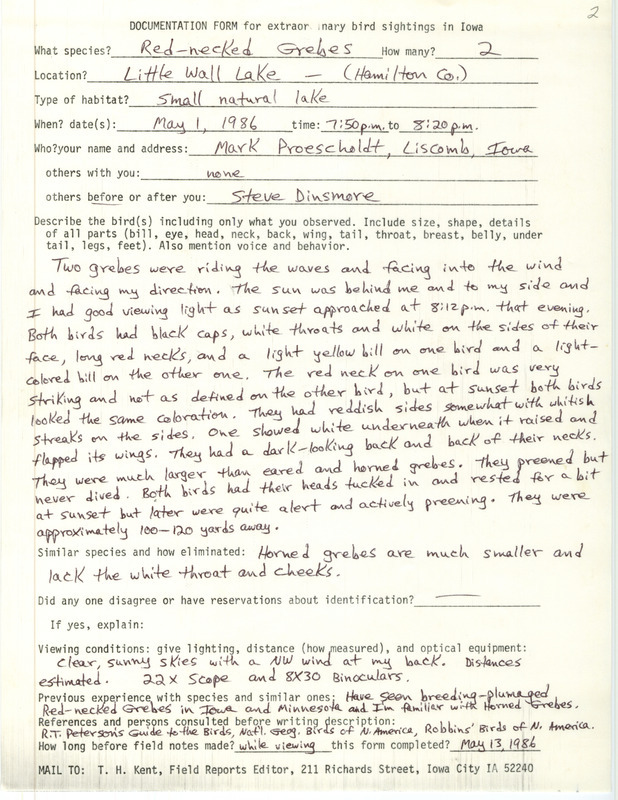 2
DOCUMENTATION FORM for extraor inary bird sightings in Iowa
What species? Red-necked Grebes How many? 2
Location? Little Wall Lake — (Hamilton Co.)
Type of habitat? small natural lake
When? date(s): May 1, 1986 time: 7:50 p.m. to 8:20 p.m.
Who? your name and address: Mark Proescholdt, Liscomb, Iowa
others with you: none
others before or after you: Steve Dinsmore
Describe the bird(s) including only what you observed. Include size, shape, details
of all parts (bill, eye, head, neck, back, wing, tail, throat, breast, belly, under
tail, legs, feet). Also mention voice and behavior.
Two grebes were riding the waves and facing into the wind
and facing my direction. The sun was behind me and to my side and
I had good viewing light as sunset approached at 8:12 p.m. that evening.
Both birds had black caps, white throats and white on the sides of their
face, long red necks, and a light yellow bill on one bird and a light-
colored bill on the other one. The red neck on one bird was very
striking and not as defined on the other bird, but at sunset both birds
looked the same coloration. They had reddish sides somewhat with whitish
streaks on the sides. One showed white underneath when it raised and
flapped its wings. They had a dark-looking back and back of their necks.
They were much larger than eared and horned grebes. They preened but
never dived. Both birds had their heads tucked in and rested for a bit
at sunset but later were quite alert and actively preening. They were
approximately 100-120 yards away.
Similar species and how eliminated: Horned grebes are much smaller and
lack the white throat and cheeks.
Did any one disagree or have reservations about identification? —
If yes, explain:
Viewing conditions: give lighting, distance (how measured), and optical equipment:
Clear, sunny skies with a NW wind at my back. Distances
estimated. 22X Scope and 8X30 Binoculars.
Previous experience with species and similar ones: Have seen breeding-plumaged
Red-necked Grebes in Iowa and Minnesota and I'm familiar with Horned Grebes.
References and persons consulted before writing description:
R.T. Peterson's Guide to the Birds, Nat'l. Geog. Birds of N. America, Robbins' Birds of N. America.
How long before field notes made? while viewing this form completed? May 13, 1986
MAIL TO: T. H. Kent, Field Reports Editor, 211 Richards Street, Iowa City IA 52240